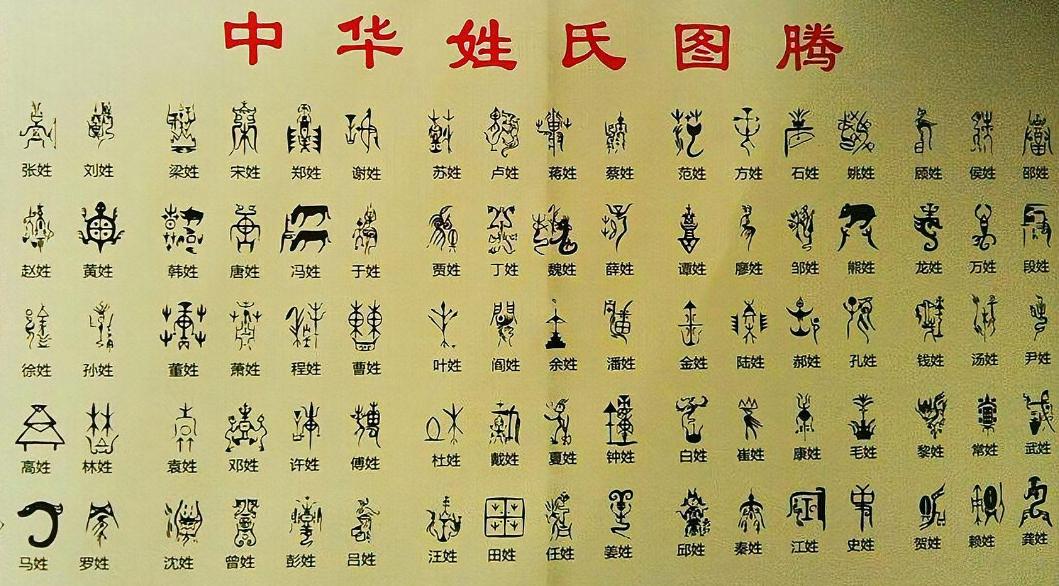 中华姓氏图腾
张姓 刘姓 梁姓 宋姓 郑姓 谢姓 苏姓 卢姓 蒋姓 蔡姓 范姓 方姓 石姓 姚姓 顾姓 侯姓 邵姓
赵姓 黄姓 韩姓 唐姓 冯姓 于姓 贾姓 丁姓 魏姓 薛姓 谭姓 廖姓 邹姓 熊姓 龙姓 万姓 段姓
徐姓 孙姓 董姓 萧姓 程姓 曹姓 叶姓 阎姓 余姓 潘姓 金姓 陆姓 郝姓 孔姓 钱姓 汤姓 尹姓
高姓 林姓 袁姓 邓姓 许姓 傅姓 杜姓 戴姓 夏姓 钟姓 白姓 崔姓 康姓 毛姓 黎姓 常姓 武姓
马姓 罗姓 沈姓 曾姓 彭姓 吕姓 汪姓 田姓 任姓 姜姓 邱姓 秦姓 江姓 史姓 贺姓 赖姓 龚姓